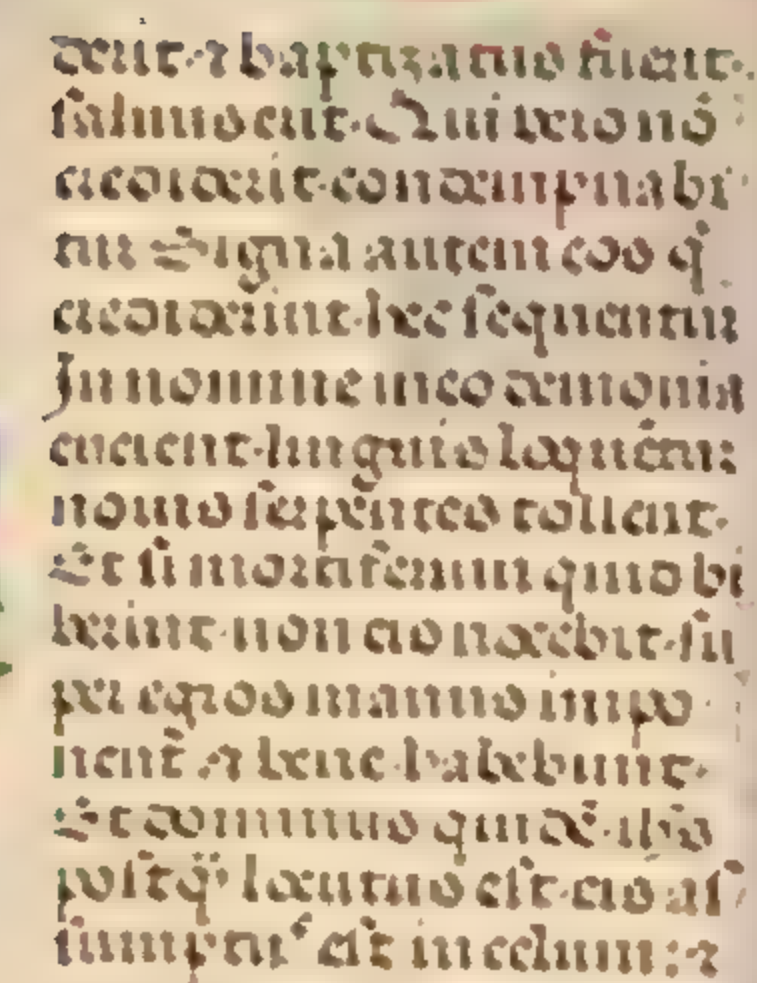 derit · ⁊ baptizatus fuerit ·
saluus erit · Qui uero nō
crediderit · condempnabi
tur Signa autem eos q̇
crediderint · hec sequentur
In nomine meo demonia
eicient · linguis loquēt̄
nouis serpentes tollent ·
Et si mortiferum quid bi
berint · non eis nocebit · su
per egros manus impo
nent̄ ⁊ bene habebunt ·
Et dominus quidē · ih̄s
postq̄ locutus est · eis as
sumptus est in celum : ⁊